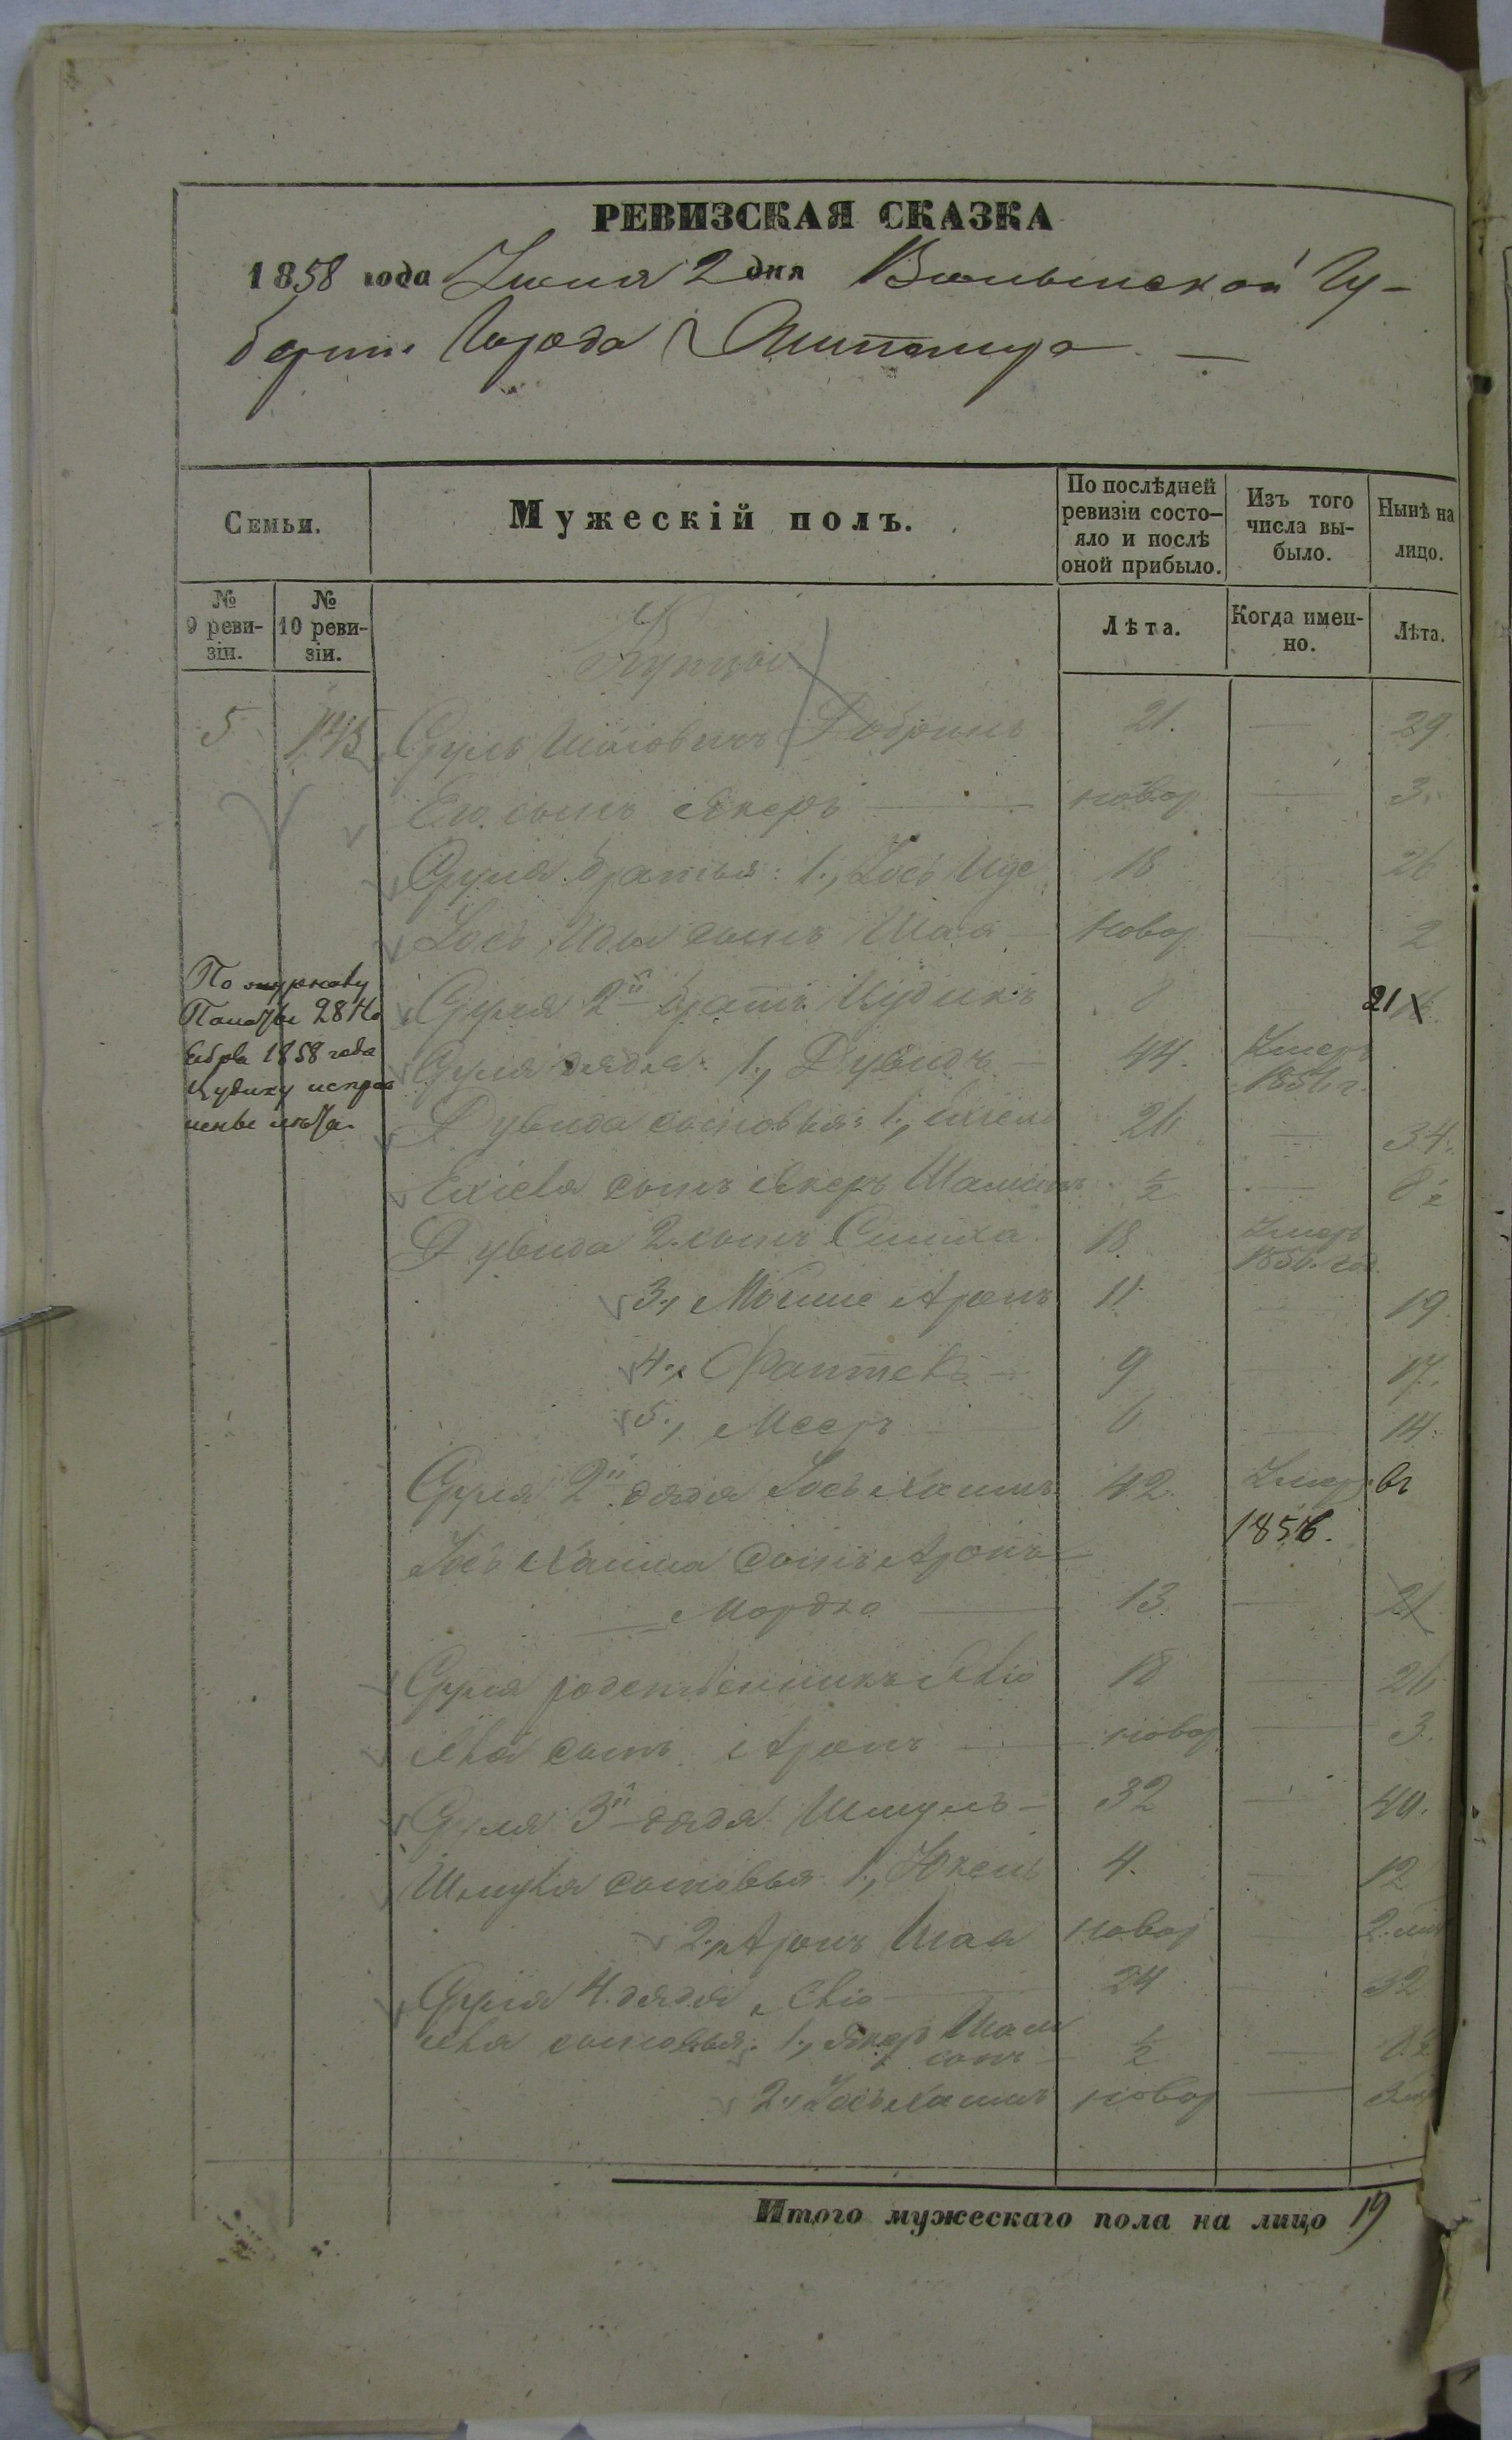 РЕВИЗСКАЯ СКАЗКА
1858 года Июня 2 дня Волынской Гу-
берніи Города Житомира
Семьи.
Мужескій полъ.
По послѣдней ревизіи состо-яло и послѣ оной прибыло.
Изъ того числа вы-было.
Нынѣ на лицо.
№ 9 реви-зіи.
№ 10 реви-зіи.
Лѣта.
Когда имен-но.
Лѣта.
Купцы
5 Сруль Шаовичъ 21. — 29.
Его сынъ Якеръ — новор — 3.
Сруля братья: 1., Іось Иде 18 26
Іось Иды сынъ Шая — новор — 2
Сруля 2й братъ Иудикъ 8 21
По журналу
Палаты 28 Но
ября 1858 года
Иудику исправ
лены лѣта.
Сруля дядя: 1., Дувидъ — 44. Умеръ 1851 г.
Дувида сыновья: 1., 26 — 34.
сынъ Якеръ ½ — 8½
Дувида 2. сынъ Симха 18. Умеръ 1856. год.
3., Мошие Аронъ 11. — 19.
4., — 9 — 17.
5., Мееръ — 6 — 14.
Сруля 2й дядя Іось Хаимъ 42. Умеръ въ
1856.
Іось Хаима сынъ Аронъ
Мордко — 13. — 21
Сруля родственникъ 18 — 26
сынъ Аронъ — новор — 3.
Сруля 3й дядя Шмуль — 32 — 40.
Шмуля сыновья 1., 4. — 12
2., Аронъ Шая новор — 2
Сруля 4. дядя — 24 — 32
сыновья: 1., Якер
½ — 8½
2., Іось Хаимъ новор — 3
Итого мужескаго пола на лицо 19